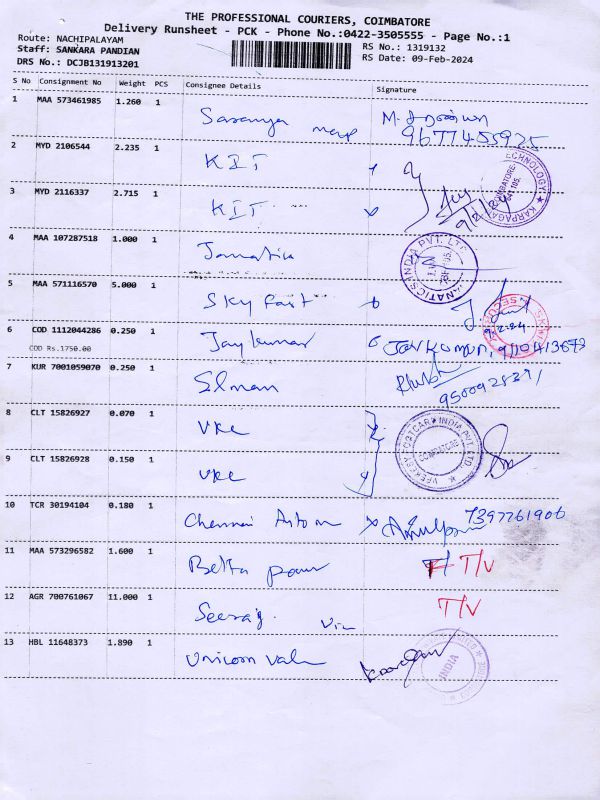 THE PROFESSIONAL COURIERS, COIMBATORE
Delivery Runsheet - PCK - Phone No.:0422-3505555 - Page No.:1
Route: NACHIPALAYAM
RS No.: 1319132
Staff: SANKARA PANDIAN
RS Date: 09-Feb-2024
DRS No.: DCJB131913201
S No Consignment No Weight PCS Consignee Details Signature
1 MAA 573461985 1.260 1
2 MYD 2106544 2.235 1 KIT
3 MYD 2116337 2.715 1 KIT 9/2/24
TECHNOLOGY
COIMBATORE
4 MAA 107287518 1.000 1
INDIA PVT. LTD
5 MAA 571116570 5.000 1 Sky Fast
9-2-24
6 COD 1112044286 0.250 1 Jaykumar
COD Rs.1750.00
7 KUR 7001059070 0.250 1 Slman
8 CLT 15826927 0.070 1 VKC
VEEKESY FOOTCARE INDIA PVT. LTD.
COIMBATORE
9 CLT 15826928 0.150 1 VKC
10 TCR 30194104 0.180 1 Chennai 7397761906
11 MAA 573296582 1.600 1 T/V
12 AGR 700761067 11.000 1 T/V
13 HBL 11648373 1.890 1 Unicorn
INDIA